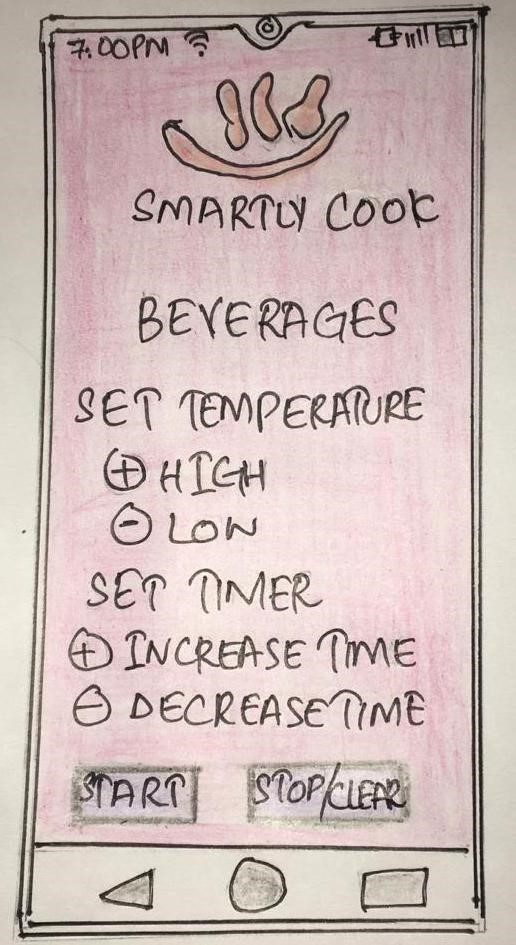 7:00PM
SMARTLY COOK
BEVERAGES
SET TEMPERATURE
⊕ HIGH
⊖ LOW
SET TIMER
⊕ INCREASE TIME
⊖ DECREASE TIME
START STOP/CLEAR